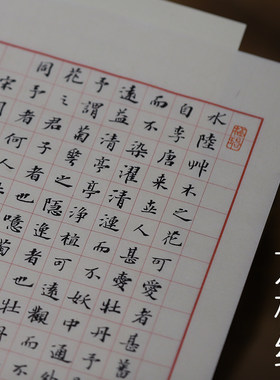 水陸艸木之花可愛者甚蕃
自李唐来世人甚愛牡丹予
而不染濯清漣而不妖中通
遠益清亭亭淨植可遠觀而不
予謂菊華之隱逸者也牡
花之君子者也噫菊
同予者何人
宋